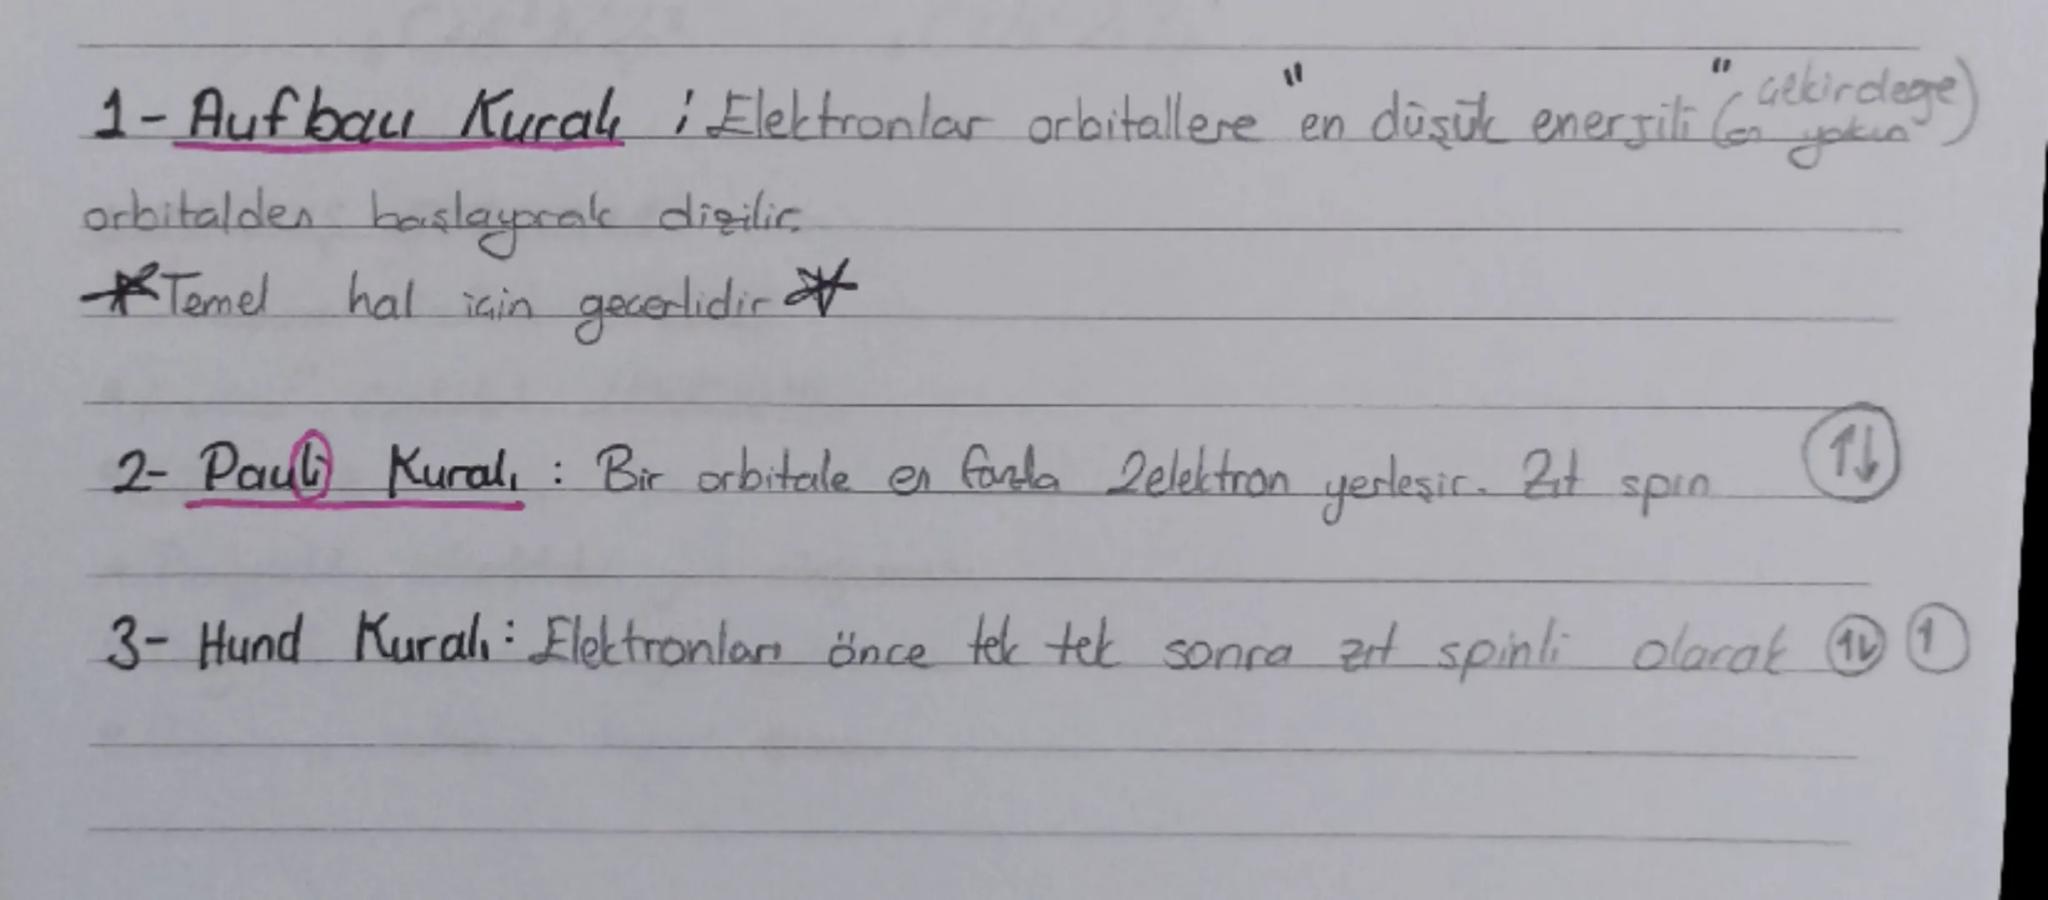 1- Aufbau Kuralı : Elektronlar orbitallere "en düşük enerjili" (çekirdeğe en yakın)
orbitalden başlayarak dizilir.
*Temel hal için geçerlidir*
2- Pauli Kuralı : Bir orbitale en fazla 2elektron yerleşir. Zıt spin ↑↓
3- Hund Kuralı: Elektronları önce tek tek sonra zıt spinli olarak ↑↓ ↑